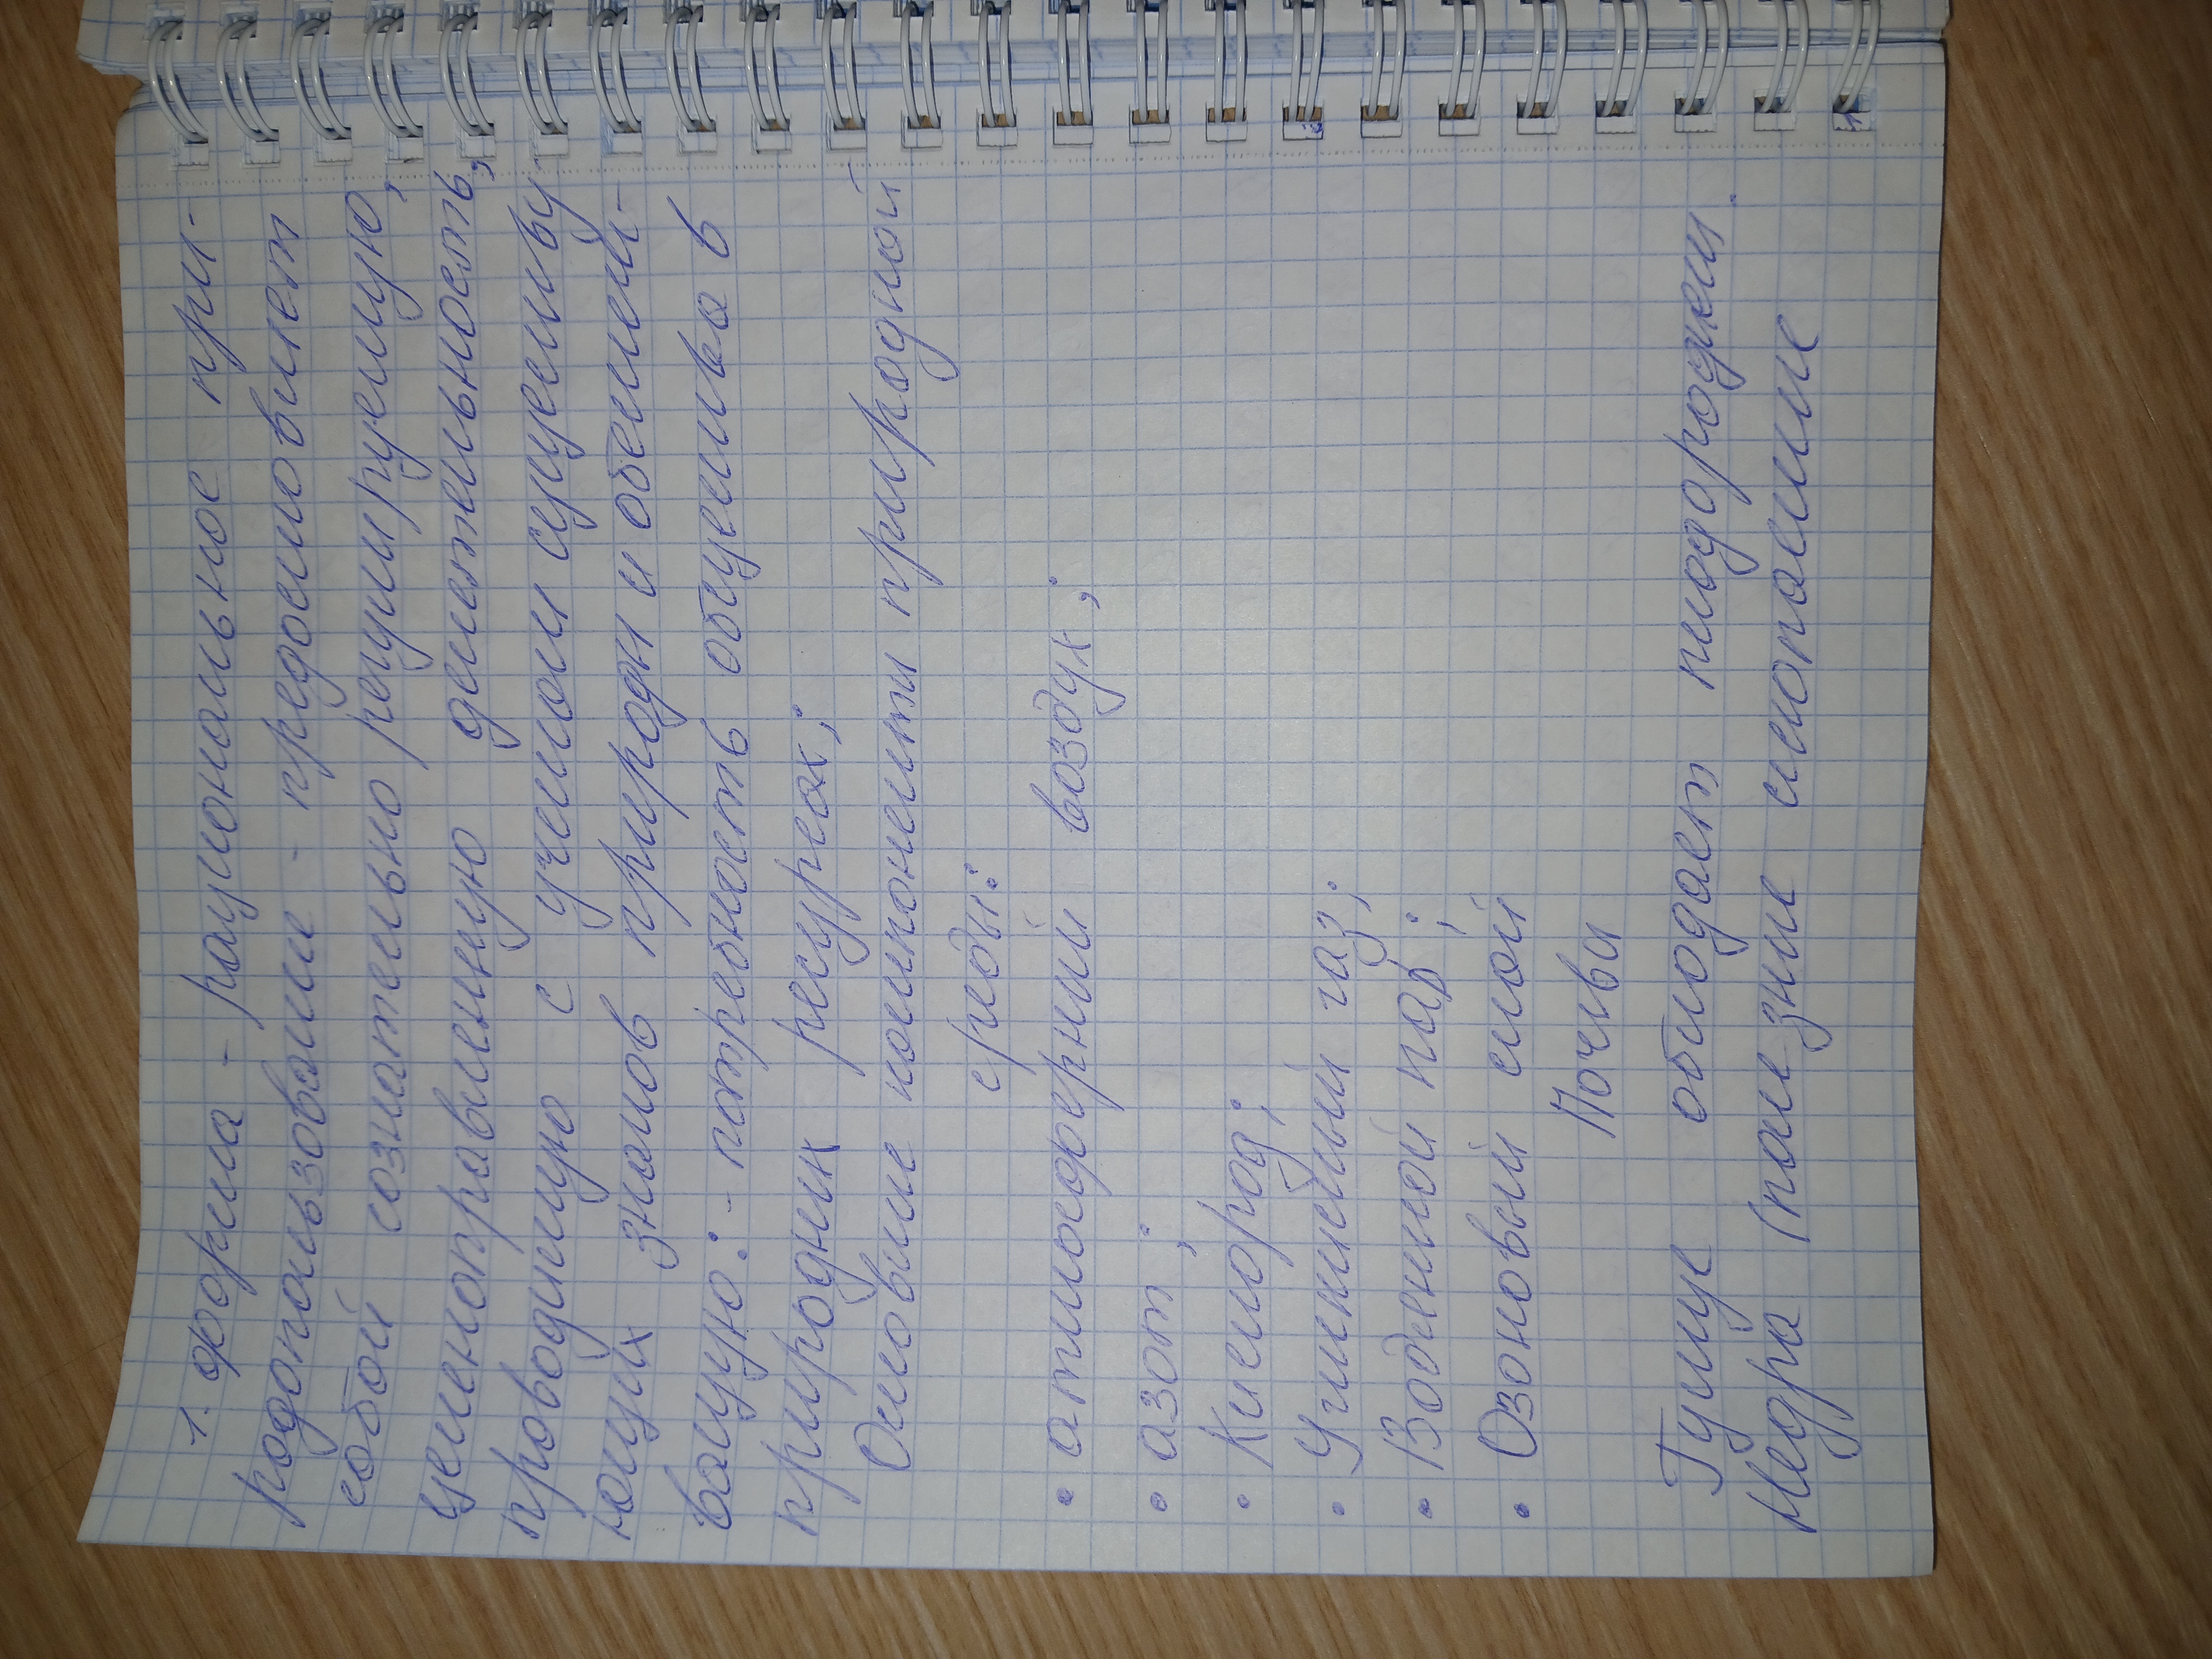 1. форма - рациональное при-
родопользование - предоставляет
собой сознательно регулируемую,
целенаправленную деятельность,
проводимую с учетом существу-
ющих знаков природы и обеспечи-
вающую: - потребность общества в
природных ресурсах;
Основные компоненты природной
среды:
• атмосферный воздух;
• азот;
• Кислород;
• Углекислый газ;
• Водяной пар;
• Озоновый слой
Почвы
Гумус обладает плодородием.
Недра (полезные ископаемые